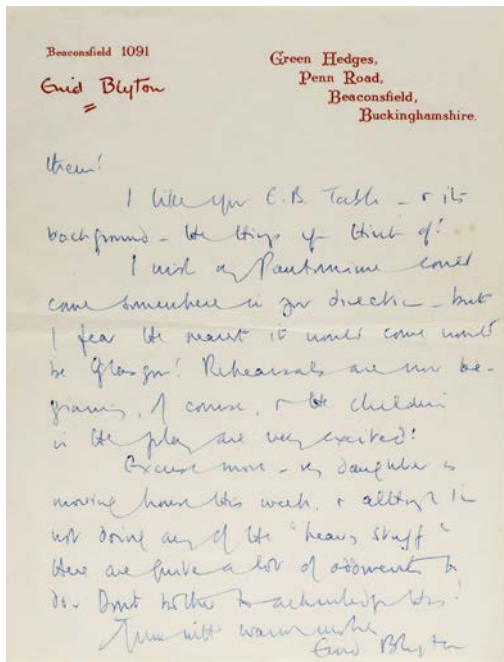 Beaconsfield 1091
Enid Blyton
Green Hedges,
Penn Road,
Beaconsfield,
Buckinghamshire.
them!
I like your E.B. Table – & its
background – the things you think of!
I wish my Pantomime could
come somewhere in your direction – but
I fear the nearest it would come would
be Glasgow! Rehearsals are now be-
ginning, of course, & the children
in the play are very excited!
Excuse more – my daughter is
moving house this week, & although I'm
not doing any of the "heavy stuff"
there are quite a lot of oddments to
do. Don't bother to acknowledge this!
with warm wishes
Enid Blyton